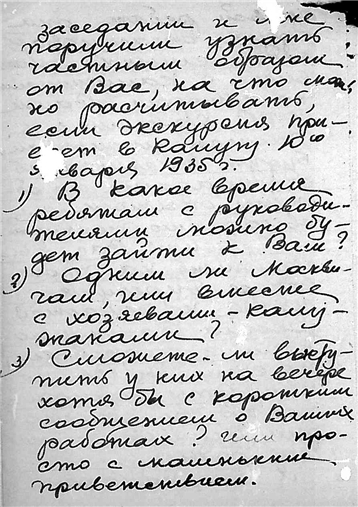 заседании и мне
поручили узнать
частным образом
от Вас, на что мож-
но расчитывать,
если экскурсия при-
едет в Калугу 10го
января 1935 г.
1) В какое время
ребятам с руководи-
телями можно бу-
дет зайти к Вам?
2) Одним ли москви-
чам, или вместе
с хозяевами - калу-
жанами?
3) Сможете-ли высту-
пить у них на вечере
хотя бы с коротким
сообщением о Ваших
работах? или про-
сто с маленьким
приветствием.